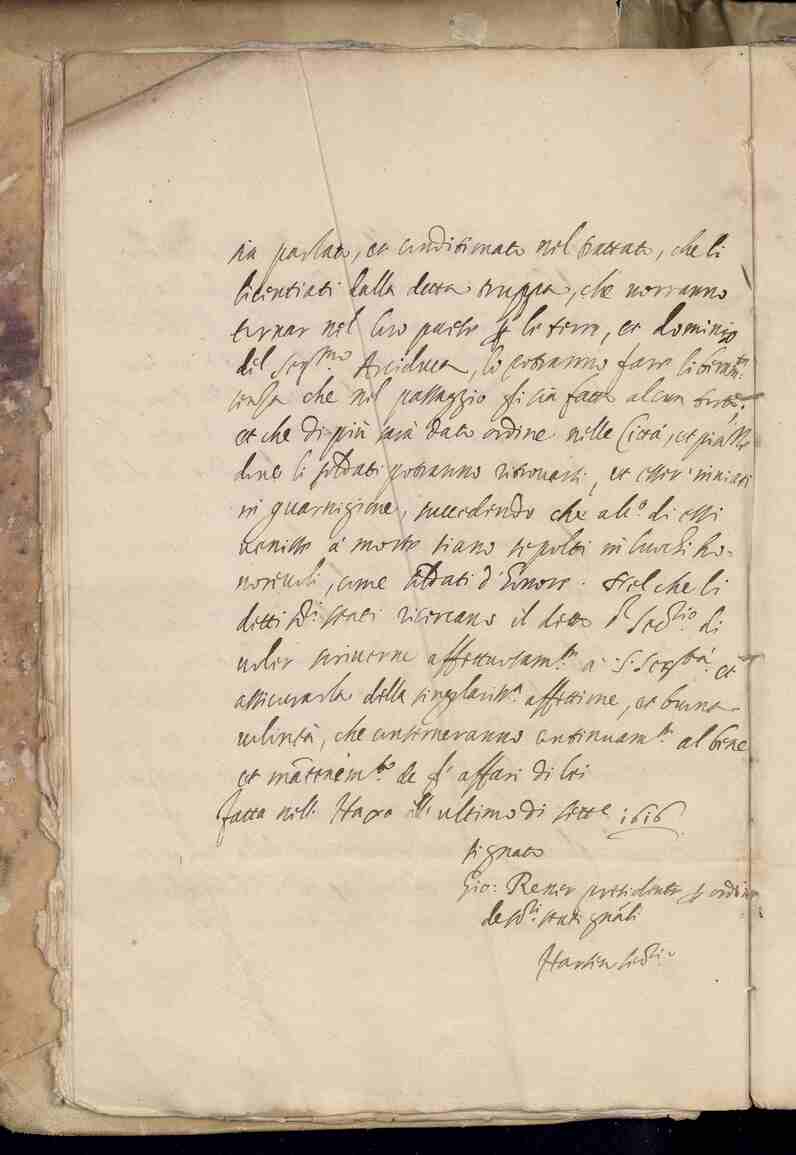 sia parlato, et conditionato nel trattato, che li
licentiati dalla detta truppa, che vorranno
tornar nel loro paese p le terre, et Dominio
del Ser.mo Arciduca, lo potranno fare liberam.te
senza che nel passaggio gli sia fatto alcun torto,
et che di più sarà dato ordine nelle Città, et
dove li soldati potranno ritrovarsi, et esser inviati
in guarnigione, succedendo che alc.o di essi
venisse à morte siano sepolti in luochi ho-
norevoli, come soldati d'honore. Nel che li
detti stati ricercano il detto S.r Secr.io di
voler scriverne affettuosam.te à S. Ser.tà et
assicurarla della singolariss.a affettione, et buona
volontà, che conserveranno continuam.te al bene
et mantenim.to de gl' affari di lei
fatta nell' Haya ulto ultimo di sette 1616
signato
Gio: presidente p ordine
de sud.ti stati gnáli